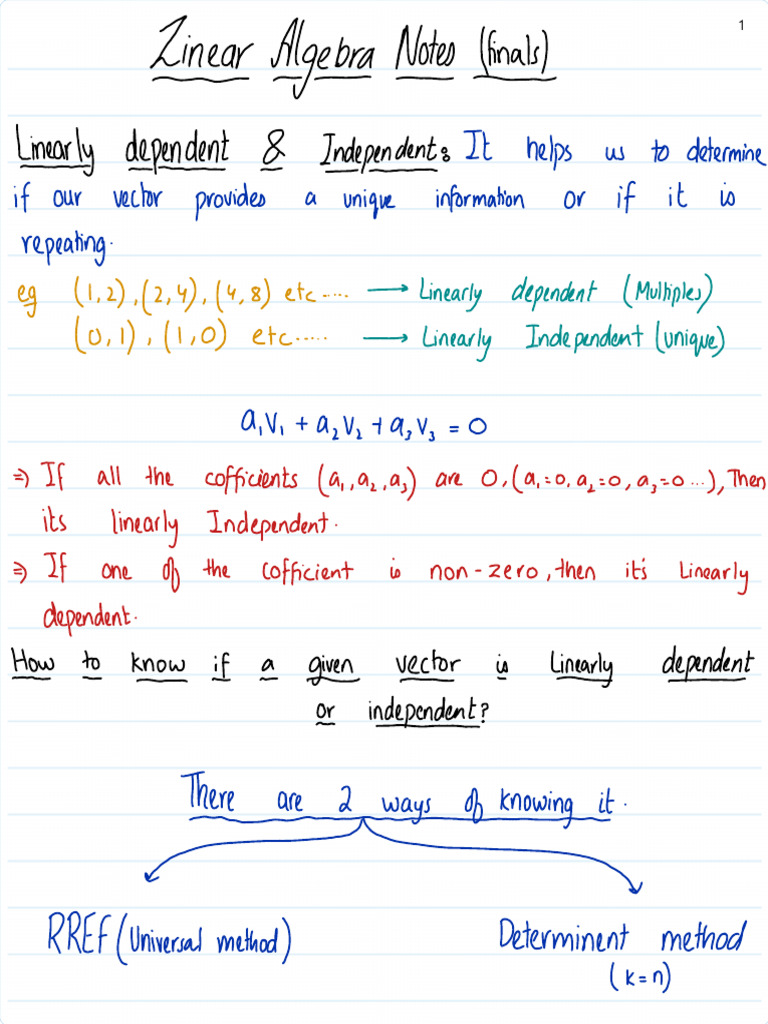 1
Linear Algebra Notes (finals)
Linearly dependent & Independent: It helps us to determine
if our vector provides a unique information or if it is
repeating.
eg (1,2), (2,4), (4,8) etc..... → Linearly dependent (Multiples)
(0,1), (1,0) etc..... → Linearly Independent (unique)
a₁v₁ + a₂v₂ + a₃v₃ = 0
⇒ If all the cofficients (a₁,a₂,a₃) are 0,(a₁=0,a₂=0,a₃=0...), Then
its linearly Independent.
⇒ If one of the cofficient is non-zero, then it's Linearly
dependent.
How to know if a given vector is Linearly dependent
or independent?
There are 2 ways of knowing it.
RREF (Universal method) Determinent method
(k=n)